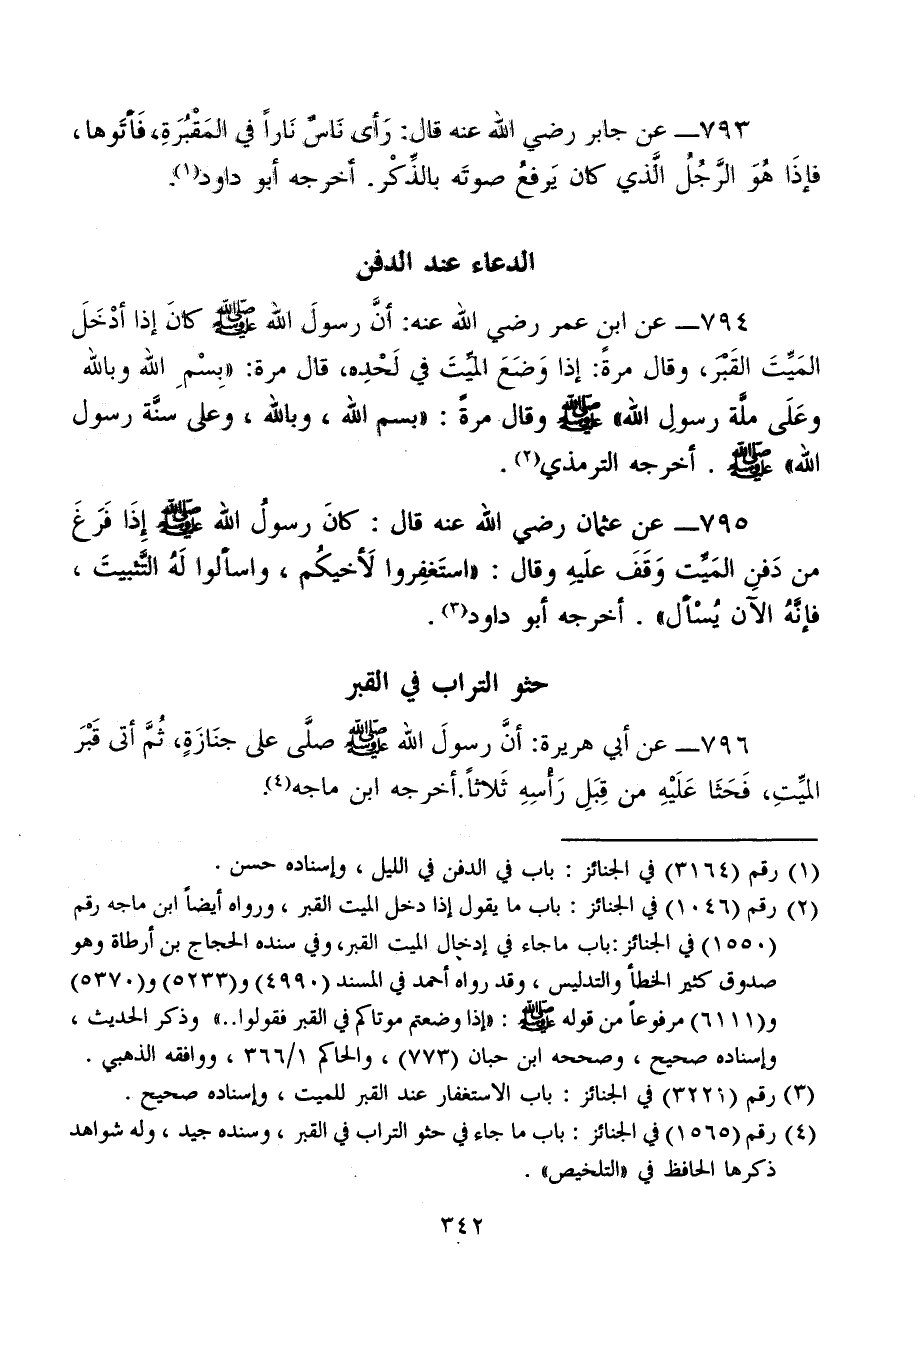 ٧٩٣ــ عن جابر رضي الله عنه قال: رَأى نَاسٌ نَاراً في المَقْبُرَةِ، فَأَتَوها،
فإذَا هُوَ الرَّجُلُ الَّذي كان يَرفعُ صوتَه بالذِّكْر. أخرجه أبو داود(١).
الدعاء عند الدفن
٧٩٤ــ عن ابن عمر رضي الله عنه: أنَّ رسولَ الله ﷺ كانَ إذا أدْخَلَ
المَيِّتَ القَبْرَ، وقال مرةً: إذا وَضَعَ المَيِّتَ في لَحْدِه، قال مرة: «بِسْمِ الله وبالله
وعَلَى ملَّة رسولِ الله» ﷺ وقال مرةً : «بسم الله ، وبالله ، وعلى سنَّة رسول
الله» ﷺ . أخرجه الترمذي(٢) .
٧٩٥ــ عن عثمان رضي الله عنه قال : كانَ رسولُ الله ﷺ إِذَا فَرَغَ
من دَفنِ المَيِّت وَقَفَ علَيهِ وقال : «استَغفِروا لَأخيكُم ، واسألوا لَهُ التَّثبيتَ ،
فإنَّهُ الآن يُسْأل» . أخرجه أبو داود(٣) .
حثو التراب في القبر
٧٩٦ــ عن أبي هريرة: أنَّ رسولَ الله ﷺ صلَّى على جنَازَةٍ، ثُمَّ أتى قَبْرَ
الميِّتِ، فَحَثَا عَلَيْهِ من قِبَلِ رَأْسِهِ ثَلاثاً. أخرجه ابن ماجه(٤).
(١) رقم (٣١٦٤) في الجنائز : باب في الدفن في الليل ، وإسناده حسن .
(٢) رقم (١٠٤٦) في الجنائز : باب ما يقول إذا دخل الميت القبر ، ورواه أيضاً ابن ماجه رقم
(١٥٥٠) في الجنائز :باب ماجاء في إدخال الميت القبر، وفي سنده الحجاج بن أرطاة وهو
صدوق كثير الخطأ والتدليس ، وقد رواه أحمد في المسند (٤٩٩٠) و(٥٢٣٣) و(٥٣٧٠)
و(٦١١١) مرفوعاً من قوله ﷺ : «إذا وضعتم موتاكم في القبر فقولوا..» وذكر الحديث ،
وإسناده صحيح ، وصححه ابن حبان (٧٧٣) ، والحاكم ٣٦٦/١ ، ووافقه الذهبي .
(٣) رقم (٣٢٢١) في الجنائز : باب الاستغفار عند القبر للميت ، وإسناده صحيح .
(٤) رقم (١٥٦٥) في الجنائز : باب ما جاء في حثو التراب في القبر ، وسنده جيد ، وله شواهد
ذكرها الحافظ في «التلخيص» .
٣٤٢